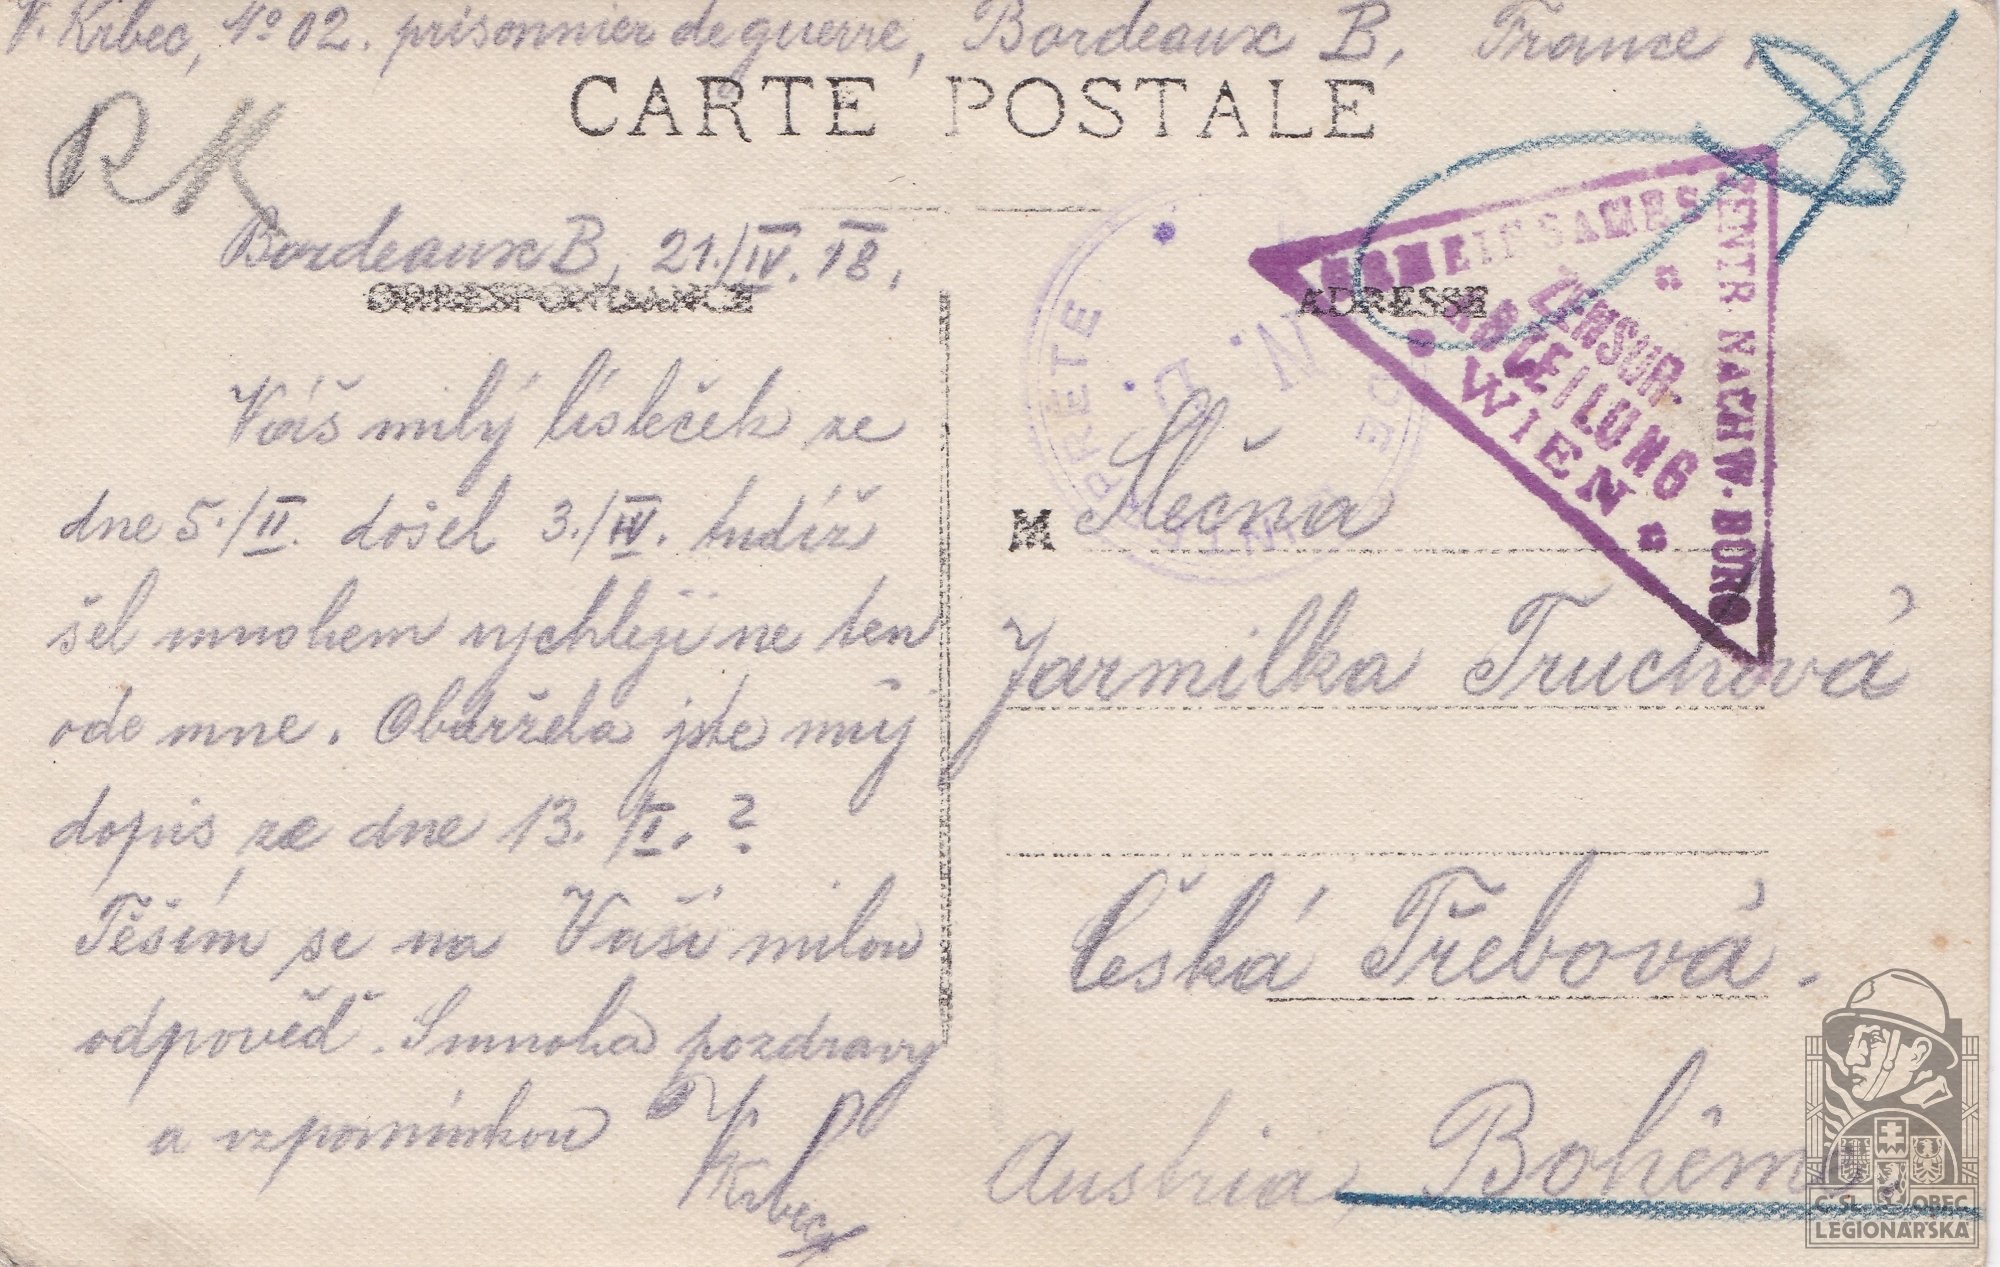 V. Krbec, No 02. prisonnier de guerre, Bordeaux B, France,
CARTE POSTALE
RK
Bordeaux B, 21./IV. 18.
CORRESPONDANCE
ADRESSE
Váš milý lísteček ze
dne 5./II. došel 3./IV. tudíž
šel mnohem rychleji ne ten
ode mne. Obdržela jste můj
dopis ze dne 13. /I. ?
Těším se na Vaší milou
odpověď. S mnoha pozdravy
a vzpomínkou VKrbec
M Slečna
Jarmilka Truchová
Česká Třebová.
Austria, Bohême
GEMEINSAMES ZENTR. NACHW. BÜRO
ZENSUR-
ABTEILUNG
WIEN
ČSL. OBEC
LEGIONÁŘSKÁ